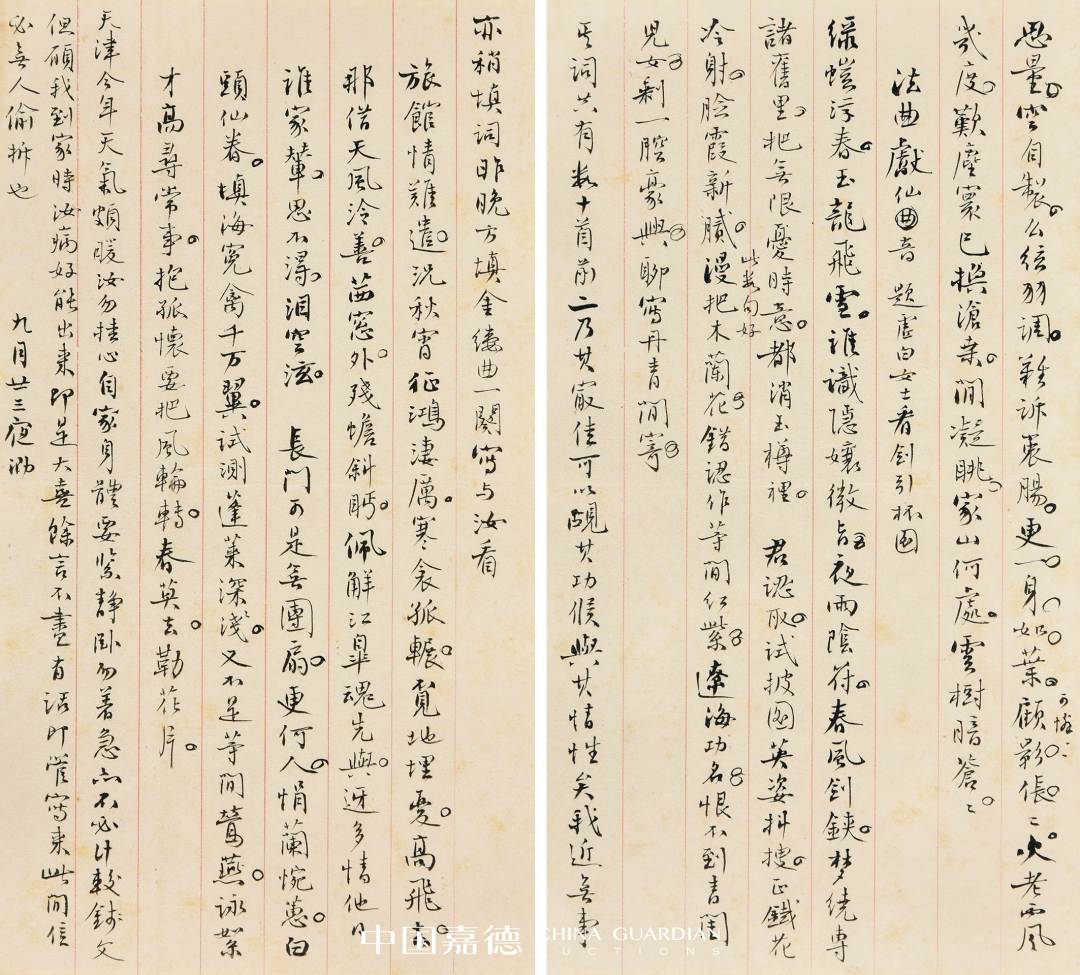 思量。空自製。么絃羽調。難訴衷腸。更一身如葉。顧影倀〻。火老西風
可憐
幾度。歎塵寰已換滄桑。閒凝眺家山何處。雲樹暗蒼〻。
法曲獻仙音 題虛白女士看劍引杯圖
綠螘浮春。玉龍飛雪。誰識隱孃微旨。夜雨陰符。春風劍鋏。梦繞專
諸舊里。把無限憂時意。都消玉樽裡。 君認取。試披圖英姿抖擻。正鐵花
冷射。臉霞新膩。漫把木蘭花。錯認作等閒红紫。遼海功名。恨不到青閨
此数句好
兒女。剩一腔豪興。聊寫丹青閒寄。
其詞共有数十首前二乃其最佳可以覘其功候與其情性矣我近無事
亦稍填詞昨晚方填金縷曲一闋寫与汝看
旅館情難遣。況秋宵征鴻淒厲。寒衾孤輾。覓地埋憂。高飛去。
那借天風泠善。茜窓外。殘蟾斜眄。佩解江皋魂先與。迓多情他日
誰家輦。思不得。淚空泫。 長門可是無團扇。更何人。悁蘭惋蕙。白
頭仙眷。填海冤禽千万翼。試測蓬萊深淺。又不是等閒鶯燕。詠絮
才高尋常事。抱孤懷要把風輪轉。春莫去。勒花片。
天津今年天氣頗暖汝勿挂心自家身體要緊靜臥勿著急亦不必计較錢文
但願我到家時汝病好能出来即是大喜餘言不盡有話即管寫来此間信
必無人偷拆也 九月廿三夜泐
中国嘉德 CHINA GUARDIAN AUCTIONS